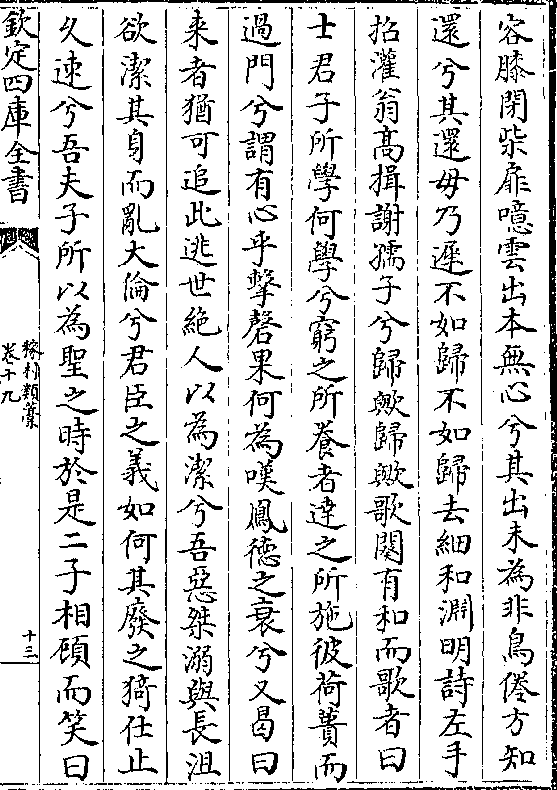 容膝閉柴扉噫雲出本無心兮其出未為非鳥倦方知
還兮其還毋乃遲不如歸不如歸去細和淵明詩左手
招灌翁高揖謝孺子兮歸歟歸歟歌闋有和而歌者曰
士君子所學何學兮窮之所養者達之所施彼荷蕢而
過門兮謂有心乎擊磬果何為嘆鳳德之衰兮又曷曰
来者猶可追此逃世絶人以為潔兮吾惡桀溺與長沮
欲潔其身而亂大倫兮君臣之義如何其廢之猗仕止
久速兮吾夫子所以為聖之時於是二子相顧而笑曰
欽定四庫全書
稼村類藁
卷十九
十三